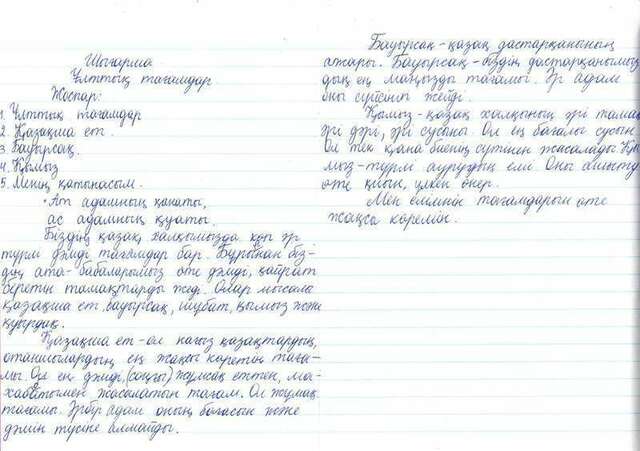 Шығарма
Ұлттық тағамдар
Жоспар:
1. Ұлттық тағамдар
2. Қазақша ет.
3. Бауырсақ.
4. Қымыз
5. Менің қатынасым.
• Ат адамның қанаты,
ас адамның қуаты.
Біздің қазақ халқымызда көп әр
түрлі дәмді тағамдар бар. Бұрыннан біз-
дің ата-бабаларымыз өте дәмді, қайрат
беретін тамақтарды жеді. Олар мысалы
қазақша ет, бауырсақ, шұбат, қымыз және
қуырдақ.
Қазақша ет-ол нағыз қазақтардың,
отаншылардың ең жақсы көретін таға-
мы. Ол ең дәмді, (соңғы) жұмсақ еттен, ма-
хаббатымен жасалатын тағам. Ол жұмақ
тағамы. Әрбір адам оның бағасын және
дәмін түсіне алмайды.
Бауырсақ-қазақ дастарқанының
атары. Бауырсақ-біздің дастарқанымыз
дың ең маңызды тағамы. Әр адам
оны сүйсініп жейді.
Қымыз-қазақ халқының әрі тамақ
әрі дәрі, әрі сусыны. Ол ең бағалы сусын.
Ол тек қана биенің сүтінен жасалады. Қы
мыз-түрлі аурудың емі. Оны ашыту
өте қиын, үлкен өнер.
Мен елімнің тағамдарын өте
жақсы көремін.